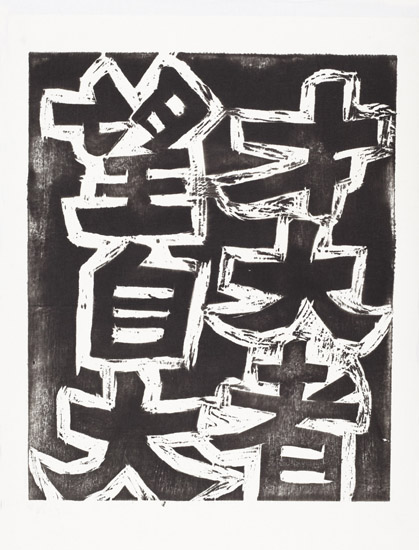 才大者
望自大